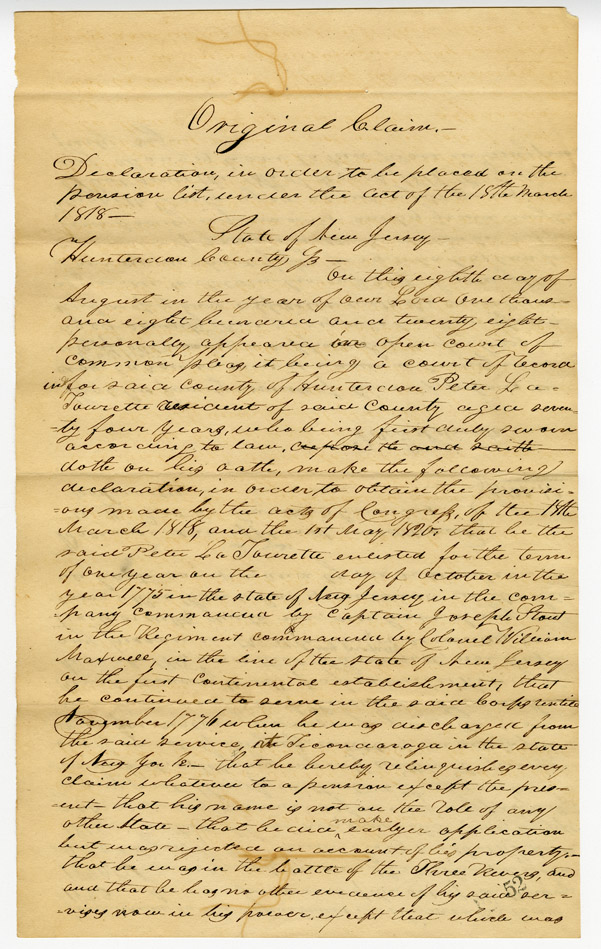 Original Claim.-
Declaration, in order to be placed on the
pension list, under the act of the 18th March
1818-
State of New Jersey-
Hunterdon County Ss-
On this eighth day of
August in the year of our Lord One thous=
and eight hundred and twenty eight-
personally, appeared in open court of
common pleas, it being a court of record
in & for said county of Hunterdon Peter La-
Tourette resident of said County aged seven-
-ty four years, who being first duly sworn
according to law, depose th and saith
doth on his oath, make the following
declaration, in order to obtain the provisi-
-ons made by the acts of Congress, of the 18th
March 1818, and the 1st May 1820, that he the
said Peter La Tourette enlisted for the term
of one year on the day of October in the
year 1775 in the state of New Jersey in the com=
=pany commanded by Captain Joseph Stout
in the Regiment commanded by Colonel William
Maxwell, in the line of the state of New Jersey
on the first continental establishment, that
he continued to serve in the said Corps untill
November 1776 when he was discharged from
the said service, at Ticondaroga in the state
of New York- that he hereby relinquishes every
claim whatever to a pension except the pres=
=ent- that his name is not on the role of any
other State- that he did make earlyer application
but was rejected on account of his property,-
that he was in the battle of the Three Rivers, and
and that he has no other evidence of his said ser-
-vises now in his power, except that which was
52